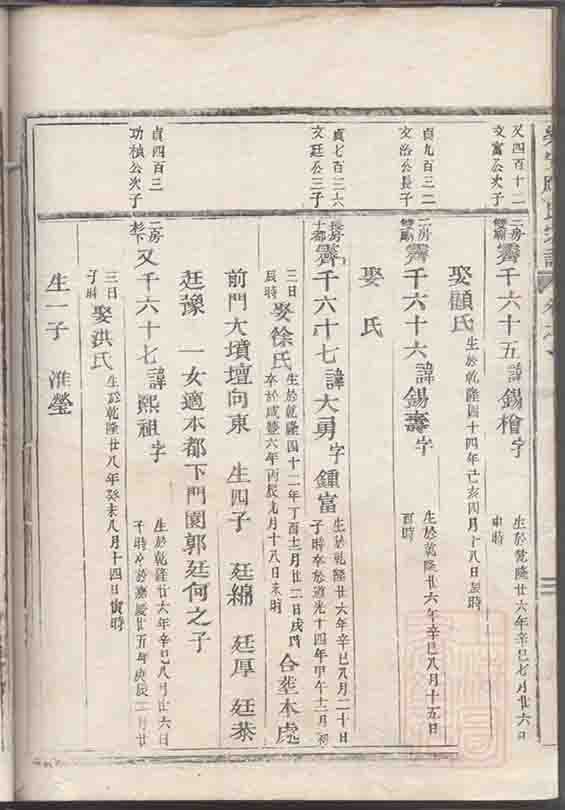 又四百十二
文富公次子
二房
霽千六十五諱錫檜字
生於乾隆廿六年辛巳七月廿六日
申時
娶顧氏
生於乾隆四十四年己亥四月十八日辰時
貞九百三二
文治公長子
二房
霽千六十六諱錫壽字
生於乾隆廿六年辛巳八月十五日
酉時
娶 氏
貞七百三六
文廷公三子
長房
十都
霽千六十七諱大勇字鍾富
生於乾隆廿六年辛巳八月二十日
子時卒於道光十四年甲午十二月初
三日
辰時
娶徐氏
生於乾隆四十二年丁酉十二月廿二日戌時
卒於咸豐六年丙辰九月十八日未時
合塟本處
前門大墳壇向東 生四子 廷綿 廷厚 廷恭
廷豫 一女適本都下門園郭廷何之子
貞四百三
功楨公次子
二房
又千六十七諱熙祖字
生於乾隆廿六年辛巳八月廿六日
子時卒於嘉慶廿五年庚辰二月廿
三日
子時
娶洪氏
生於乾隆廿八年癸未八月十四日寅時
生一子 淮瑩